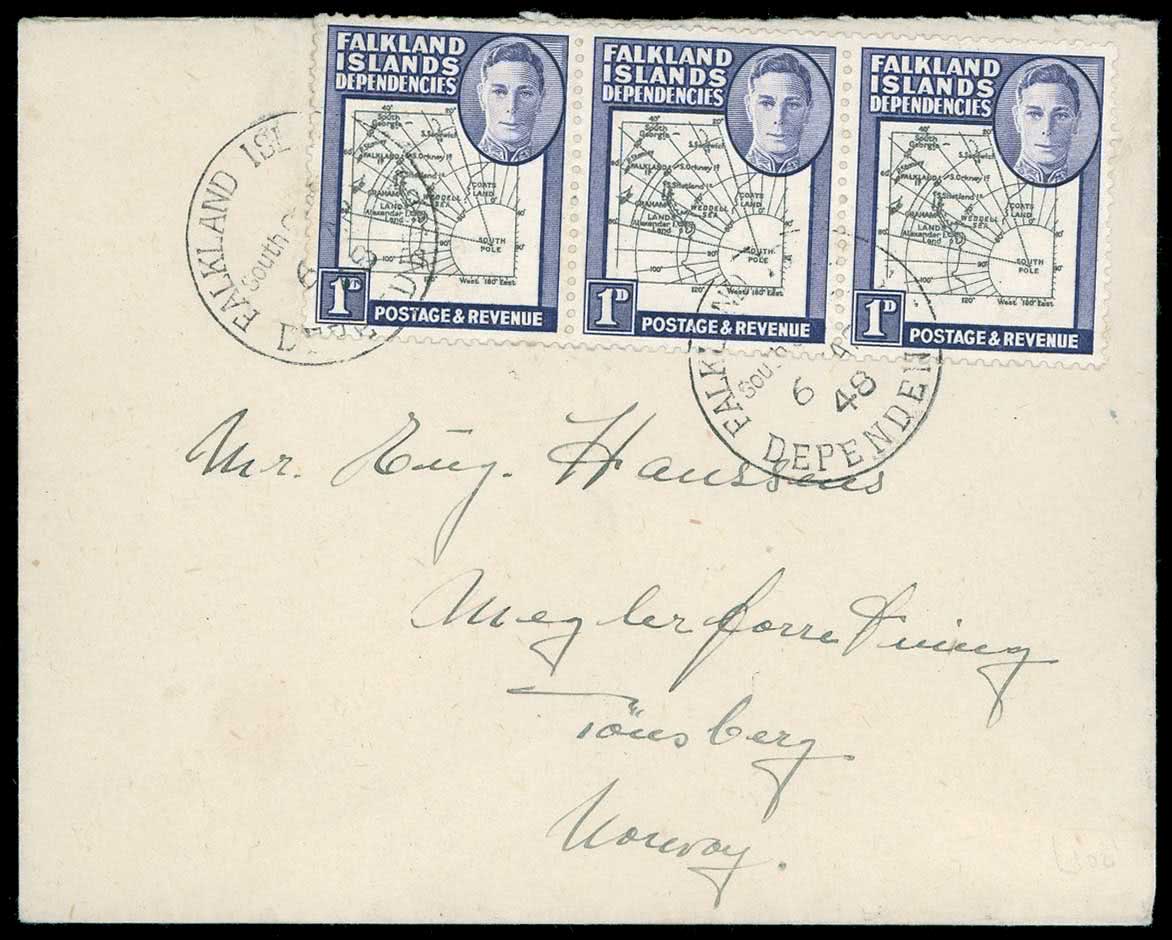 FALKLAND
ISLANDS
DEPENDENCIES
40°
South
Georgia
S.Sandwich
FALKLAND
S.Orkney Iˢ
S.Shetland Iˢ
GRAHAM
LAND
Alexander I
Land
COATS
LAND
WEDDELL
SEA
0°
SOUTH
POLE
100°
West 180° East
1D
POSTAGE & REVENUE
FALKLAND
ISLANDS
DEPENDENCIES
40°
20°
South
Georgia
S.Sandwich
FALKLAND
S.Orkney Iˢ
S.Shetland Iˢ
GRAHAM
LAND
Alexander I
Land
COATS
LAND
WEDDELL
SEA
0°
SOUTH
POLE
100°
120°
West 180° East
1D
POSTAGE & REVENUE
FALKLAND
ISLANDS
DEPENDENCIES
40°
20°
South
Georgia
S.Sandwich
FALKLAND
S.Orkney Iˢ
S.Shetland Iˢ
GRAHAM
LAND
Alexander I
Land
COATS
LAND
WEDDELL
SEA
0°
SOUTH
POLE
100°
120°
West 180° East
1D
POSTAGE & REVENUE
FALKLAND ISL
South G
6
FALKLAN
South
6 AP
48
DEPENDEN
Mr. Eug. Hanssens
Meglerforretning
Tönsberg
Norway.